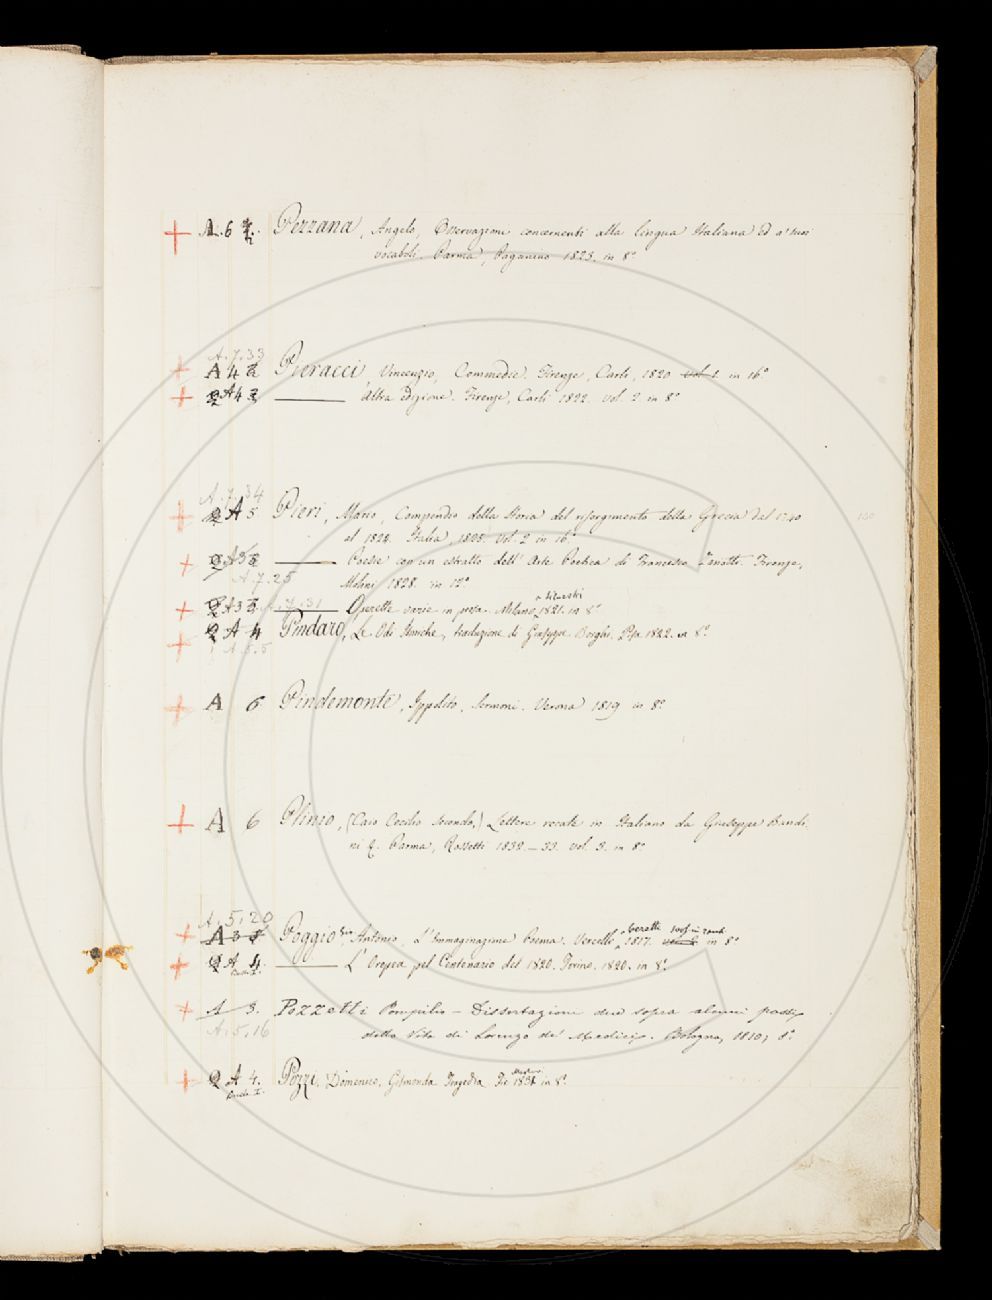 A. 6 Pezzana, Angelo, Osservazioni concernenti alla lingua Italiana ed a' suoi
vocaboli. Parma, Paganino 1823. in 8°
A.7.33
A 4 Pieracci, Vincenzio, Commedie. Firenze, Carli, 1820 vol. 1. in 16°
A 4 altra edizione. Firenze, Carli 1822. vol. 2 in 8°
A.7.34
A 5 Pieri, Mario, Compendio della Storia del risorgimento della Grecia dal 1740
al 1824. Italia, 1828. vol. 2 in 16°
A 3 Poesie con un estratto dell' Arte Poetica di Francesco Zanotti. Firenze,
A.7.25 Molini 1828. in 12°
Silvestri
A 3 A.7.31 Operette varie in prosa. Milano, 1821. in 8°
A 4 Pindaro, Le Odi Istmiche, traduzione di Giuseppe Borghi. Pisa 1822. in 8°
A.5.5
A 6 Pindemonte, Ippolito, Sermoni. Verona 1819 in 8°
A 6 Plinio, (Caio Cecilio Secondo,) Lettere recate in Italiano da Giuseppe Bandi-
ni. Parma, Rossetti 1832.–33. vol. 3. in 8°
A.5.20
A 3 Poggio, Antonio, L'Immaginazione Poema. Vercelli, 1817. in 8°
A 4. L'Oropea pel Centenario del 1820. Torino. 1820. in 8°
A 3. Pozzetti Pompilio – Dissertazioni due sopra alcuni passi
A.5.16 della Vita di Lorenzo de' Medici. Bologna, 1810, 8°
A 4. Pozzi, Domenico, Gismonda Tragedia in 8°